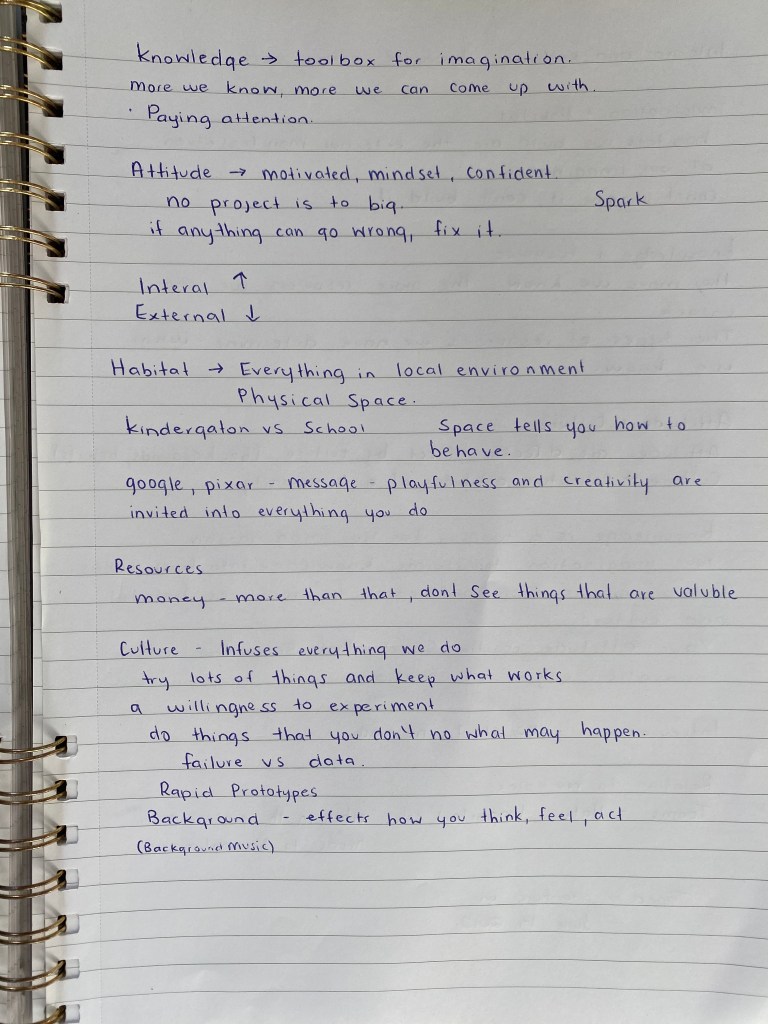 Knowledge → toolbox for imagination.
more we know, more we can come up with.
· Paying attention.
Attitude → motivated, mindset, confident.
no project is to big. Spark
if anything can go wrong, fix it.
Interal ↑
External ↓
Habitat → Everything in local environment
Physical Space.
kindergaton vs School Space tells you how to
behave.
google, pixar - message - playfulness and creativity are
invited into everything you do
Resources
money - more than that, dont see things that are valuble
Culture - Infuses everything we do
try lots of things and keep what works
a willingness to experiment
do things that you don't no what may happen.
failure vs data.
Rapid Prototypes
Background - effects how you think, feel, act
(Background music)